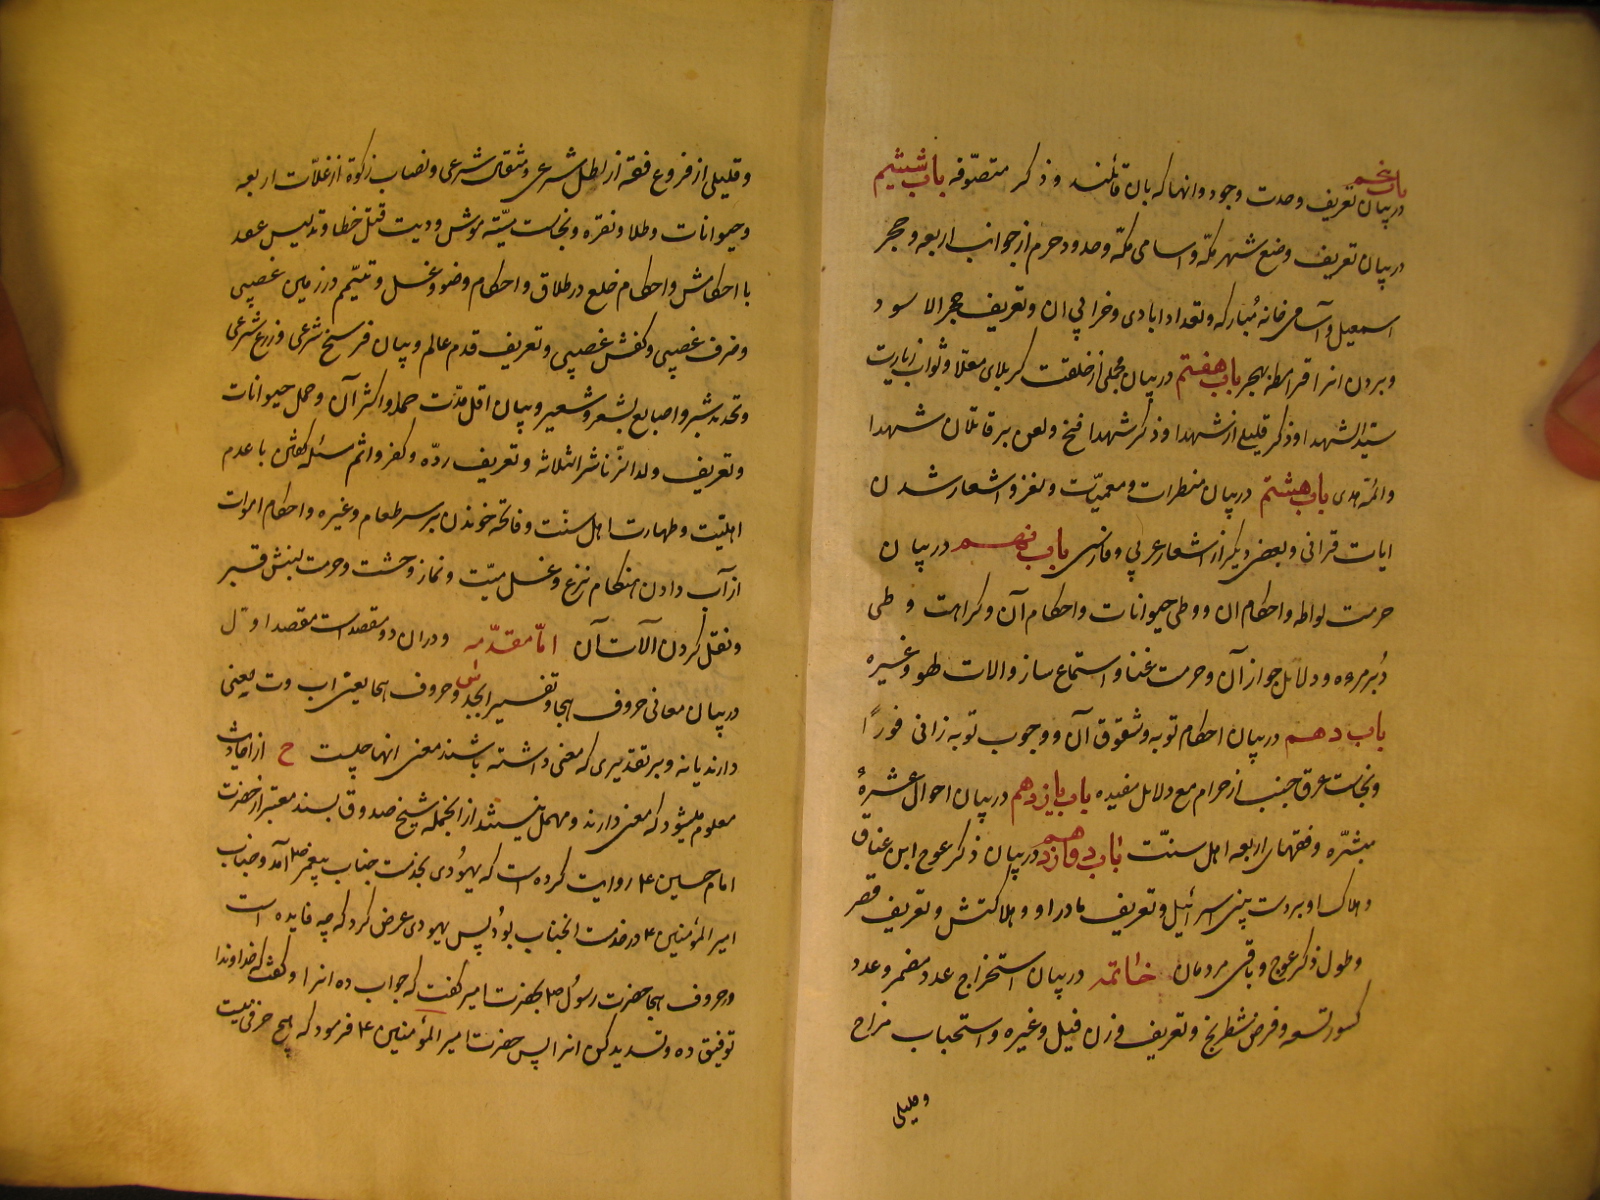 باب پنجم
در بیان تعریف وحدت وجود و انها که بان قائلند و ذکر متصوّفه باب ششم
در بیان تعریف وضع شهر مکّه و اسامی مکّه و حدود حرم از جوانب اربعه و حجر
اسمعیل و آسامی خانه مُبارکه و تعداد ابادی و خرابی ان و تعریف حجر الاسود
و بردن انرا قرامطه بهجر باب هفتم در بیان مجملی از خلقت کربلای معلا و ثواب زیارت
سیّد الشهدا و ذکر قلیلی از شهدا و ذکر شهدا فخ و لعن بر قاتلان شهدا
و ائمّه هدی باب هشتم در بیان منظرات و معمیّات و لغز و اشعار شدن
ایات قرانی و بعضی دیگر از اشعار عربی و فارسی باب نهم در بیان
حرمت لواطه و احکام ان و وطی حیوانات و احکام آن و کراهت وطی
دُبر مروه و دلائل جواز آن و حرمت غنا و استماع ساز و الات لهو و غیره
باب دهم در بیان احکام توبه و شقوق آن و وجوب توبه زانی فورًا
و نجاست عرق جنب از حرام مع دلایل مفیده باب یازدهم در بیان احوال عشرهٔ
مبشّره و فقهای اربعه اهل سنّت باب دوازدهم در بیان ذکر عوج ابن عناق
و هلاک او بردست بنی اسرائیل و تعریف مادر او و هلاکتش و تعریف قصر
و طول ذکر عوج و باقی مردمان خاتمه در بیان استخراج عدد مضمر و عدد
کسور تسعه و فرض شطرنج و تعریف وزن فیل و غیره و استحباب مزاح
و قلیلی
و قلیلی از فروع فقه از رطل شرعی و مثقال شرعی و نصاب زکوة از غلّات اربعه
و حیوانات و طلا و نقره و نجاست میّته موش و دیت قتل خطا و تدلیس عقد
با احکامش و احکام خلع در طلاق و احکام وضو و غسل و تیمّم در زمین غصبی
و ظرف غصبی و کفش غصبی و تعریف قدم عالم و بیان فرسخ شرعی و ذرع شرعی
و تحدید شبر و اصابع بشعر و شعیر و بیان اقل مدّت حمل و اکثر آن و حمل حیوانات
و تعریف ولد الزّنا شر الثلاثه و تعریف ردّه و کفر و اثم مسئله کفتن با عدم
اهلیّت و طهارت اهل سنّت و فاتحه خوندن بر سر طعام و غیره و احکام اموات
از آب دادن هنکام نزع و غسل میّت و نماز وحشت و حرمت نبش قبر
و نقل کردن آلات آن امّا مقدّمه و دران دو مقصد است مقصد اوّل
در بیان معانی حروف هجا و تفسیر ابجد و حروف هجا یعنی اب و ت معنی
دارند یا نه و بر تقدیری که معنی داشته باشند معنی انها چیست ح از احادیث
معلوم میشود که معنی دارند و مهمل نیستند از انجمله شیخ صدوق بسند معتبر از حضرت
امام حسین ع روایت کرده است که یهودی بخدمت جناب پیغمبر ص آمد و جناب
امیر المؤمنین ع در خدمت انجناب بود پس یهودی عرض کرد که چه فایده است
در حروف هجا حضرت رسول ص بحضرت امیر کفت که جواب ده انرا و کفت که خداوندا
توفیق ده و تسدید کن انرا پس حضرت امیر المؤمنین ع فرمود که هیچ حرفی نیست